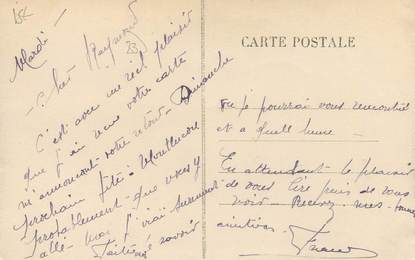 Mardi -
Cher Raymond
C'est avec un réel plaisir
que j'ai reçu votre carte
m'annoncant votre retour - Dimanche
prochain fête à
probablement que vous y
allé - Moi j'irai surement
Faites moi savoir
CARTE POSTALE
ou je pourrai vous rencontré
et a quelle heure -
En attendant le plaisir
de vous lire puis de vous
voir - Recevez mes bonnes
amitiés.